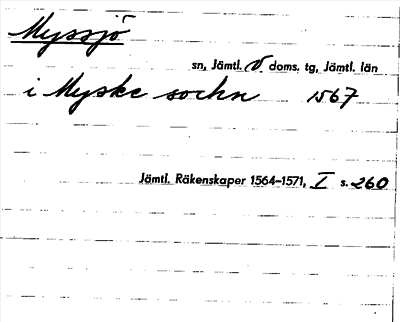 Myssjö
sn, Jämtl. V. doms. tg, Jämtl. län
i Myske sochn 1567
Jämtl. Räkenskaper 1564-1571, I s. 260